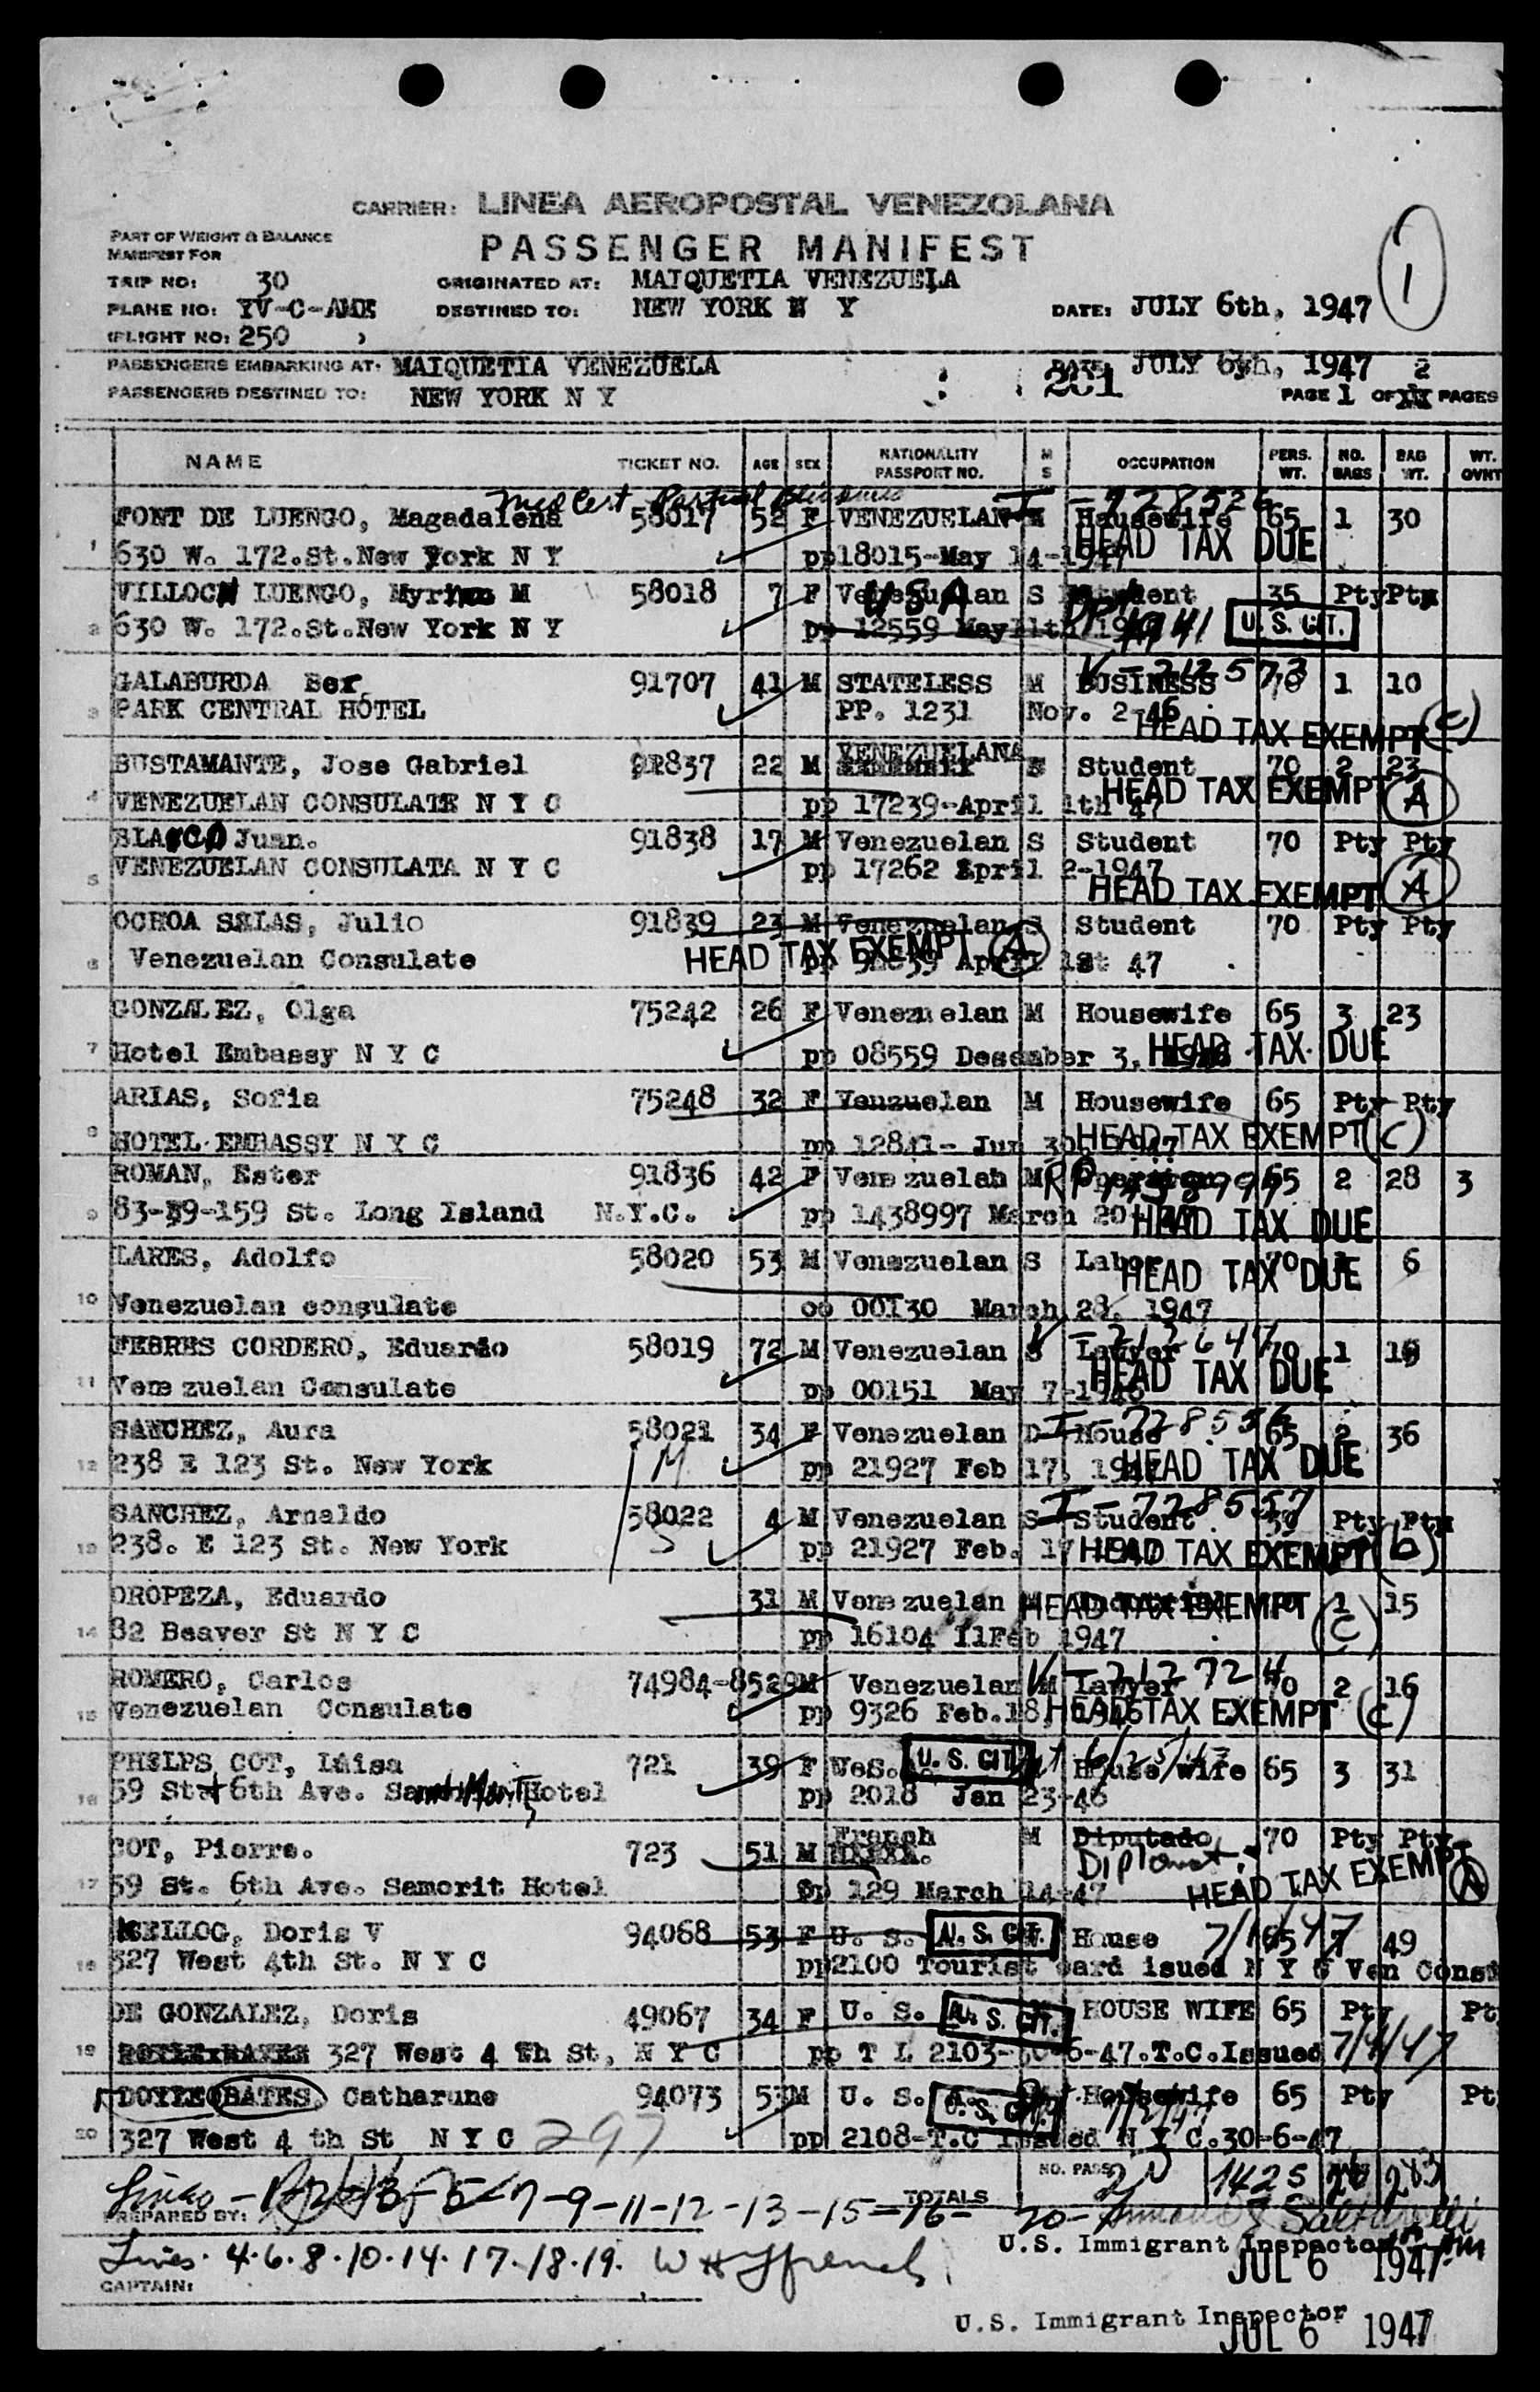 CARRIER: LINEA AEROPOSTAL VENEZOLANA
PART OF WEIGHT & BALANCE
MANIFEST FOR
PASSENGER MANIFEST
1
TRIP NO: 30 ORIGINATED AT: MAIQUETIA VENEZUELA
PLANE NO: YV-C-AME DESTINED TO: NEW YORK N Y DATE: JULY 6th, 1947
(FLIGHT NO: 250 )
PASSENGERS EMBARKING AT: MAIQUETIA VENEZUELA DATE: JULY 6yh, 1947
201
PASSENGERS DESTINED TO: NEW YORK N Y PAGE 1 OF 2 PAGES
NAME TICKET NO. AGE SEX NATIONALITY PASSPORT NO. M S OCCUPATION PERS. WT. NO. BAGS BAG WT. WT. OVNT
Med Cert Partial Blindness I-728526
FONT DE LUENGO, Magadalena 58017 52 F VENEZUELAN M Hausewife 65 1 30
1 630 W. 172.St.New York N Y pp18015-May 14-1947 HEAD TAX DUE
VILLOCH LUENGO, Myrina M 58018 7 F Venezuelan USA S Student 35 Pty Pty
2 630 W. 172.St.New York N Y pp 12559 May 11th 1941 U.S. CIT.
V-212573
GALABURDA Ber. 91707 41 M STATELESS M BUSINESS 70 1 10
3 PARK CENTRAL HOTEL PP. 1231 Nov. 2-46 HEAD TAX EXEMPT (C)
BUSTAMANTE, Jose Gabriel 91837 22 M VENEZUELANA S Student 70 2 23
4 VENEZUELAN CONSULATE N Y C pp 17239-April 1th 47 HEAD TAX EXEMPT A
BLASCO Juan. 91838 17 M Venezuelan S Student 70 Pty Pty
5 VENEZUELAN CONSULATA N Y C pp 17262 April 2-1947 HEAD TAX EXEMPT A
OCHOA SALAS, Julio 91839 23 M Venezuelan S Student 70 Pty Pty
6 Venezuelan Consulate HEAD TAX EXEMPT A pp April 1st 47
GONZALEZ, Olga 75242 26 F Venezuelan M Housewife 65 3 23
7 Hotel Embassy N Y C pp 08559 Desember 3, 1946 HEAD TAX DUE
ARIAS, Sofia 75248 32 F Venzuelan M Housewife 65 Pty Pty
8 HOTEL EMBASSY N Y C pp 12841- Jun 30, 1947 HEAD TAX EXEMPT (C)
ROMAN, Ester 91836 42 F Venezuelan M RP 1438997 65 2 28 3
9 83-39-159 St. Long Island N.Y.C. pp 1438997 March 20-47 HEAD TAX DUE
LARES, Adolfo 58020 53 M Venezuelan S Labor 70 1 6
HEAD TAX DUE
10 Venezuelan consulate cc 00130 March 28, 1947
V-212647
FEBRES CORDERO, Eduardo 58019 72 M Venezuelan S Lawyer 70 1 19
11 Venezuelan Consulate pp 00151 May 7-1946 HEAD TAX DUE
I-728556
SANCHEZ, Aura 58021 34 F Venezuelan D House 65 2 36
12 238 E 123 St. New York M pp 21927 Feb 17, 1947 HEAD TAX DUE
I-728557
SANCHEZ, Arnaldo 58022 4 M Venezuelan S Student 39 Pty Pty
13 238. E 123 St. New York S pp 21927 Feb. 17 1947 HEAD TAX EXEMPT (b)
OROPEZA, Eduardo 31 M Venezuelan M Industrial 70 1 15
HEAD TAX EXEMPT (C)
14 82 Beaver St N Y C pp 16104 11Feb 1947
V-212724
ROMERO, Carlos 74984-8529 M Venezuelan M Lawyer 70 2 16
15 Venezuelan Consulate pp 9326 Feb.18, 1946 HEAD TAX EXEMPT (C)
PHELPS COT, Luisa 721 39 F U.S. U. S. CIT. House wife 65 3 31
16 59 St.+ 6th Ave. Hotel pp 2018 Jan 23-46
COT, Pierre. 723 51 M French M Diputado 70 Pty Pty
Diplomat
17 59 St. 6th Ave. Samorit Hotel Dp 129 March 14-47 HEAD TAX EXEMPT A
KELLOG, Doris V 94068 53 F U. S. U. S. CIT. House 65 7 49
7/1/47
18 327 West 4th St. N Y C pp2100 Tourist card isued N Y C Ven Const
DE GONZALEZ, Doris 49067 34 F U. S. U. S. CIT. HOUSE WIFE 65 Pty Pt
19 327 West 4 th St, N Y C pp T L 2103-30-6-47.T.C.Issued 7/4/47
DOYLE BATES, Catharune 94073 53 M U. S. U. S. CIT. Housewife 65 Pty Pt
20 327 West 4 th St N Y C 297 pp 2108-T.C Issued N Y C.30-6-47
NO. PASS. 20 TOTALS 1425 26 283
Lines - 1-2-3-5-7-9-11-12-13-15-16-20-
PREPARED BY:
U.S. Immigrant Inspector
JUL 6 1947
Lines. 4.6.8.10.14.17.18.19. W H French
CAPTAIN:
U.S. Immigrant Inspector
JUL 6 1947